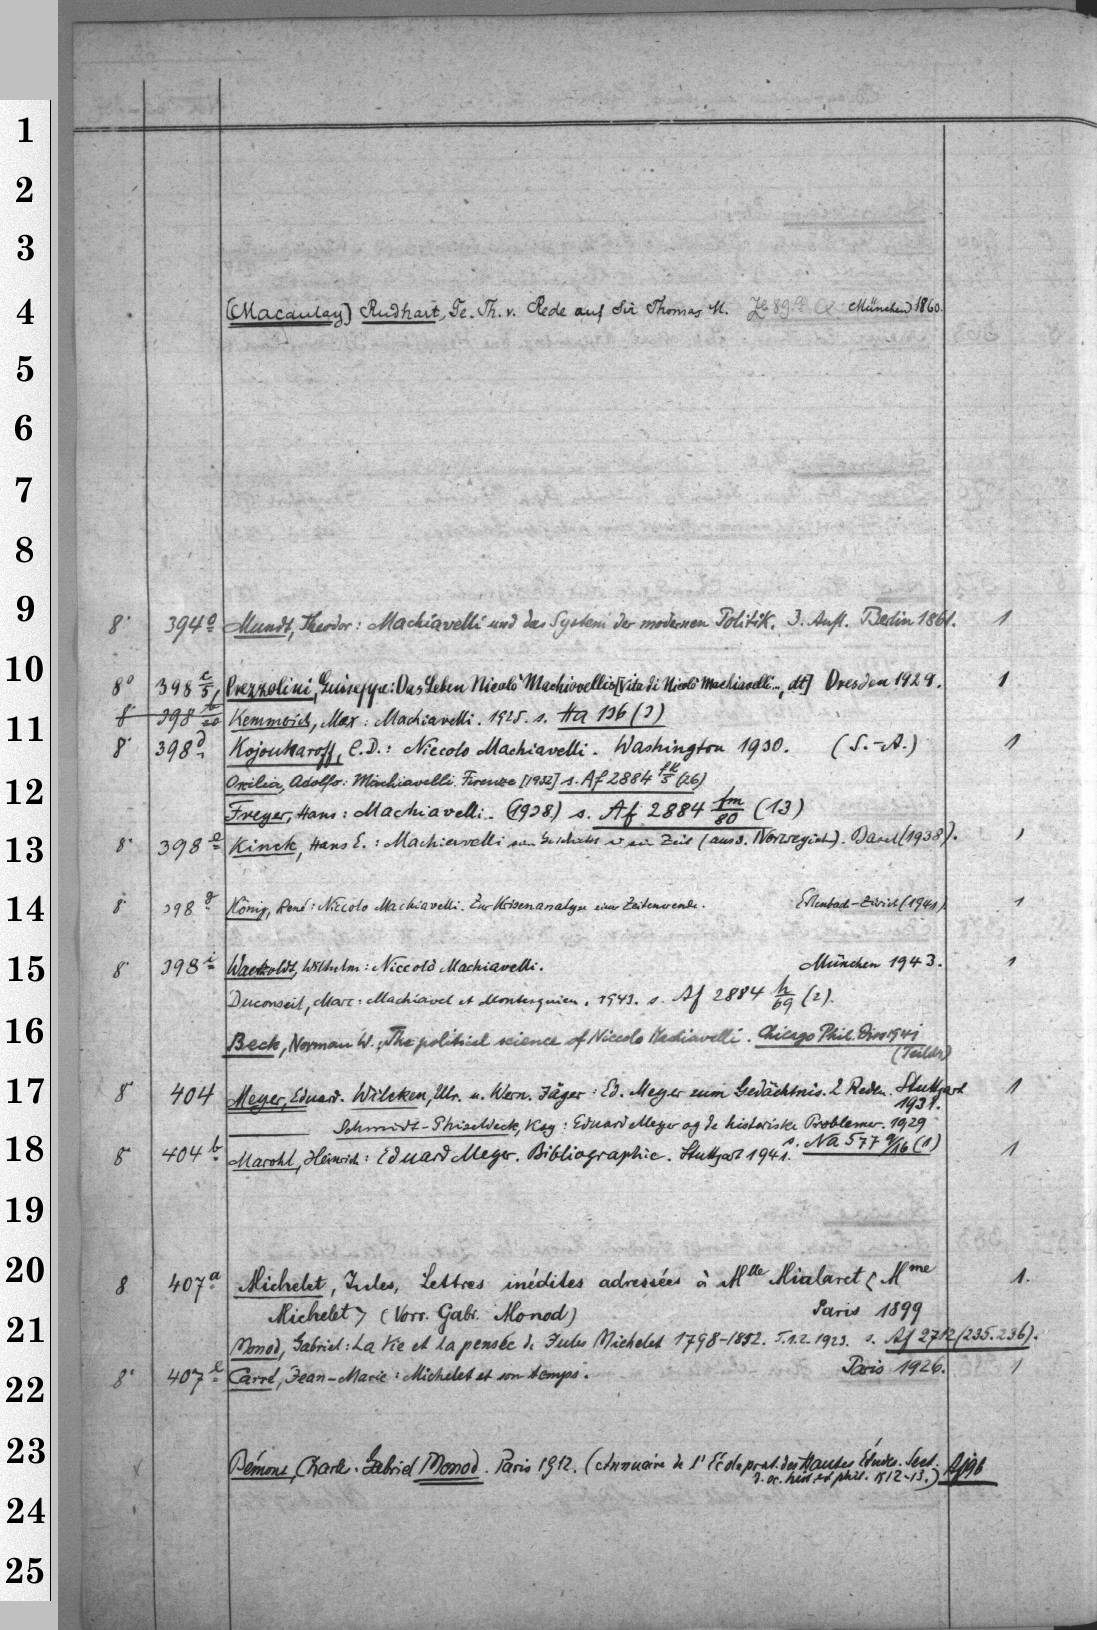 1
2
3
4 [Macaulay] Rudhart, Ge. Th. v. Rede auf Sir Thomas M. München 1860.
5
6
7
8
9 8° 394 a Mundt, Theodor: Machiavelli und das System der modernen Politik. 3. Aufl. Berlin 1861. 1
10 8° 398 c/5, Prezzolini, Guiseppe: Das Leben Nicolò Machiavellis [Vita di Nicolò Machiavelli.., dt] Dresden 1929. 1
11 8° 398 Kemmerich, Max: Machiavelli. 1925. s. Ha 136 (3)
8° 398 d Kojouharoff, C.D.: Niccolo Machiavelli. Washington 1930. (S.-A.) 1
12 Oxilia, Adolfo: Machiavelli. Firenze [1932] s. Af 2884 (26)
Freyer, Hans: Machiavelli. (1938) s. Af 2884 fm/80 (13)
13 8° 398 e Kinck, Hans E.: Machiavelli seine Geschichte u seine Zeit (aus d. Norwegisch). Basel (1938). 1
14 8° 398 g König, René: Niccolo Machiavelli. Zur Krisenanalyse einer Zeitenwende. Erlenbach-Zürich (1941). 1
15 8° 398 i Waetzoldt, Wilhelm: Niccolò Machiavelli. München 1943. 1
Duconseil, Marc: Machiavel et Montesquieu. 1943. s. Af 2884 h/69 (2).
16 Beck, Norman W.: The political science of Niccolo Machiavelli. Chicago Phil. Diss 1941
(Teildr)
17 8° 404 Meyer, Eduard. Wilcken, Ulr. u. Wern. Jäger: Ed. Meyer zum Gedächtnis. 2 Reden. Stuttgart 1931. 1
Schmidt-Phiseldeck, Kay: Eduard Meyer og de historiske Problemer. 1929
s. Na 577 q/16 (1)
18 8° 404 b Marohl, Heinrich: Eduard Meyer. Bibliographie. Stuttgart 1941. 1
19
20 8 407 a Michelet, Jules, Lettres inédites adressées à Mlle Mialaret < Mme 1.
Michelet > (Vorr. Gabr. Monod) Paris 1899
21 Monod, Gabriel: La Vie et la pensée de Jules Michelet 1798-1852. T. 1.2. 1923. s. Af 2712 (235.236).
22 8° 407 e Carré, Jean-Marie: Michelet et son temps. Paris 1926. 1
23 Bémont, Charles. Gabriel Monod. Paris 1912. (Annuaire de l'École prat. des Hautes Études. Sect. Aj 96
d. sc. hist. et phil. 1912-13.)
24
25